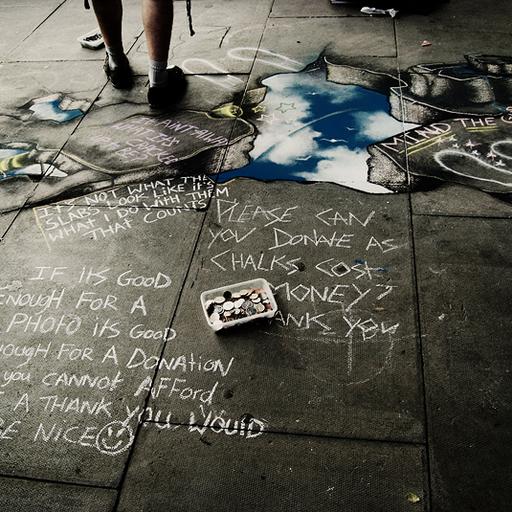 MIND THE
IT'S NOT WHAT THE
SLABS LOOK LIKE IT'S
WHAT I DO WITH THEM
THAT COUNTS
PLEASE CAN
YOU DONATE AS
CHALKS COST
MONEY?
ANK YOU
IF ITS GOOD
ENOUGH FOR A
PHOTO ITS GOOD
NOUGH FOR A DONATION
YOU CANNOT AFFORD
A THANK YOU WOULD
BE NICE